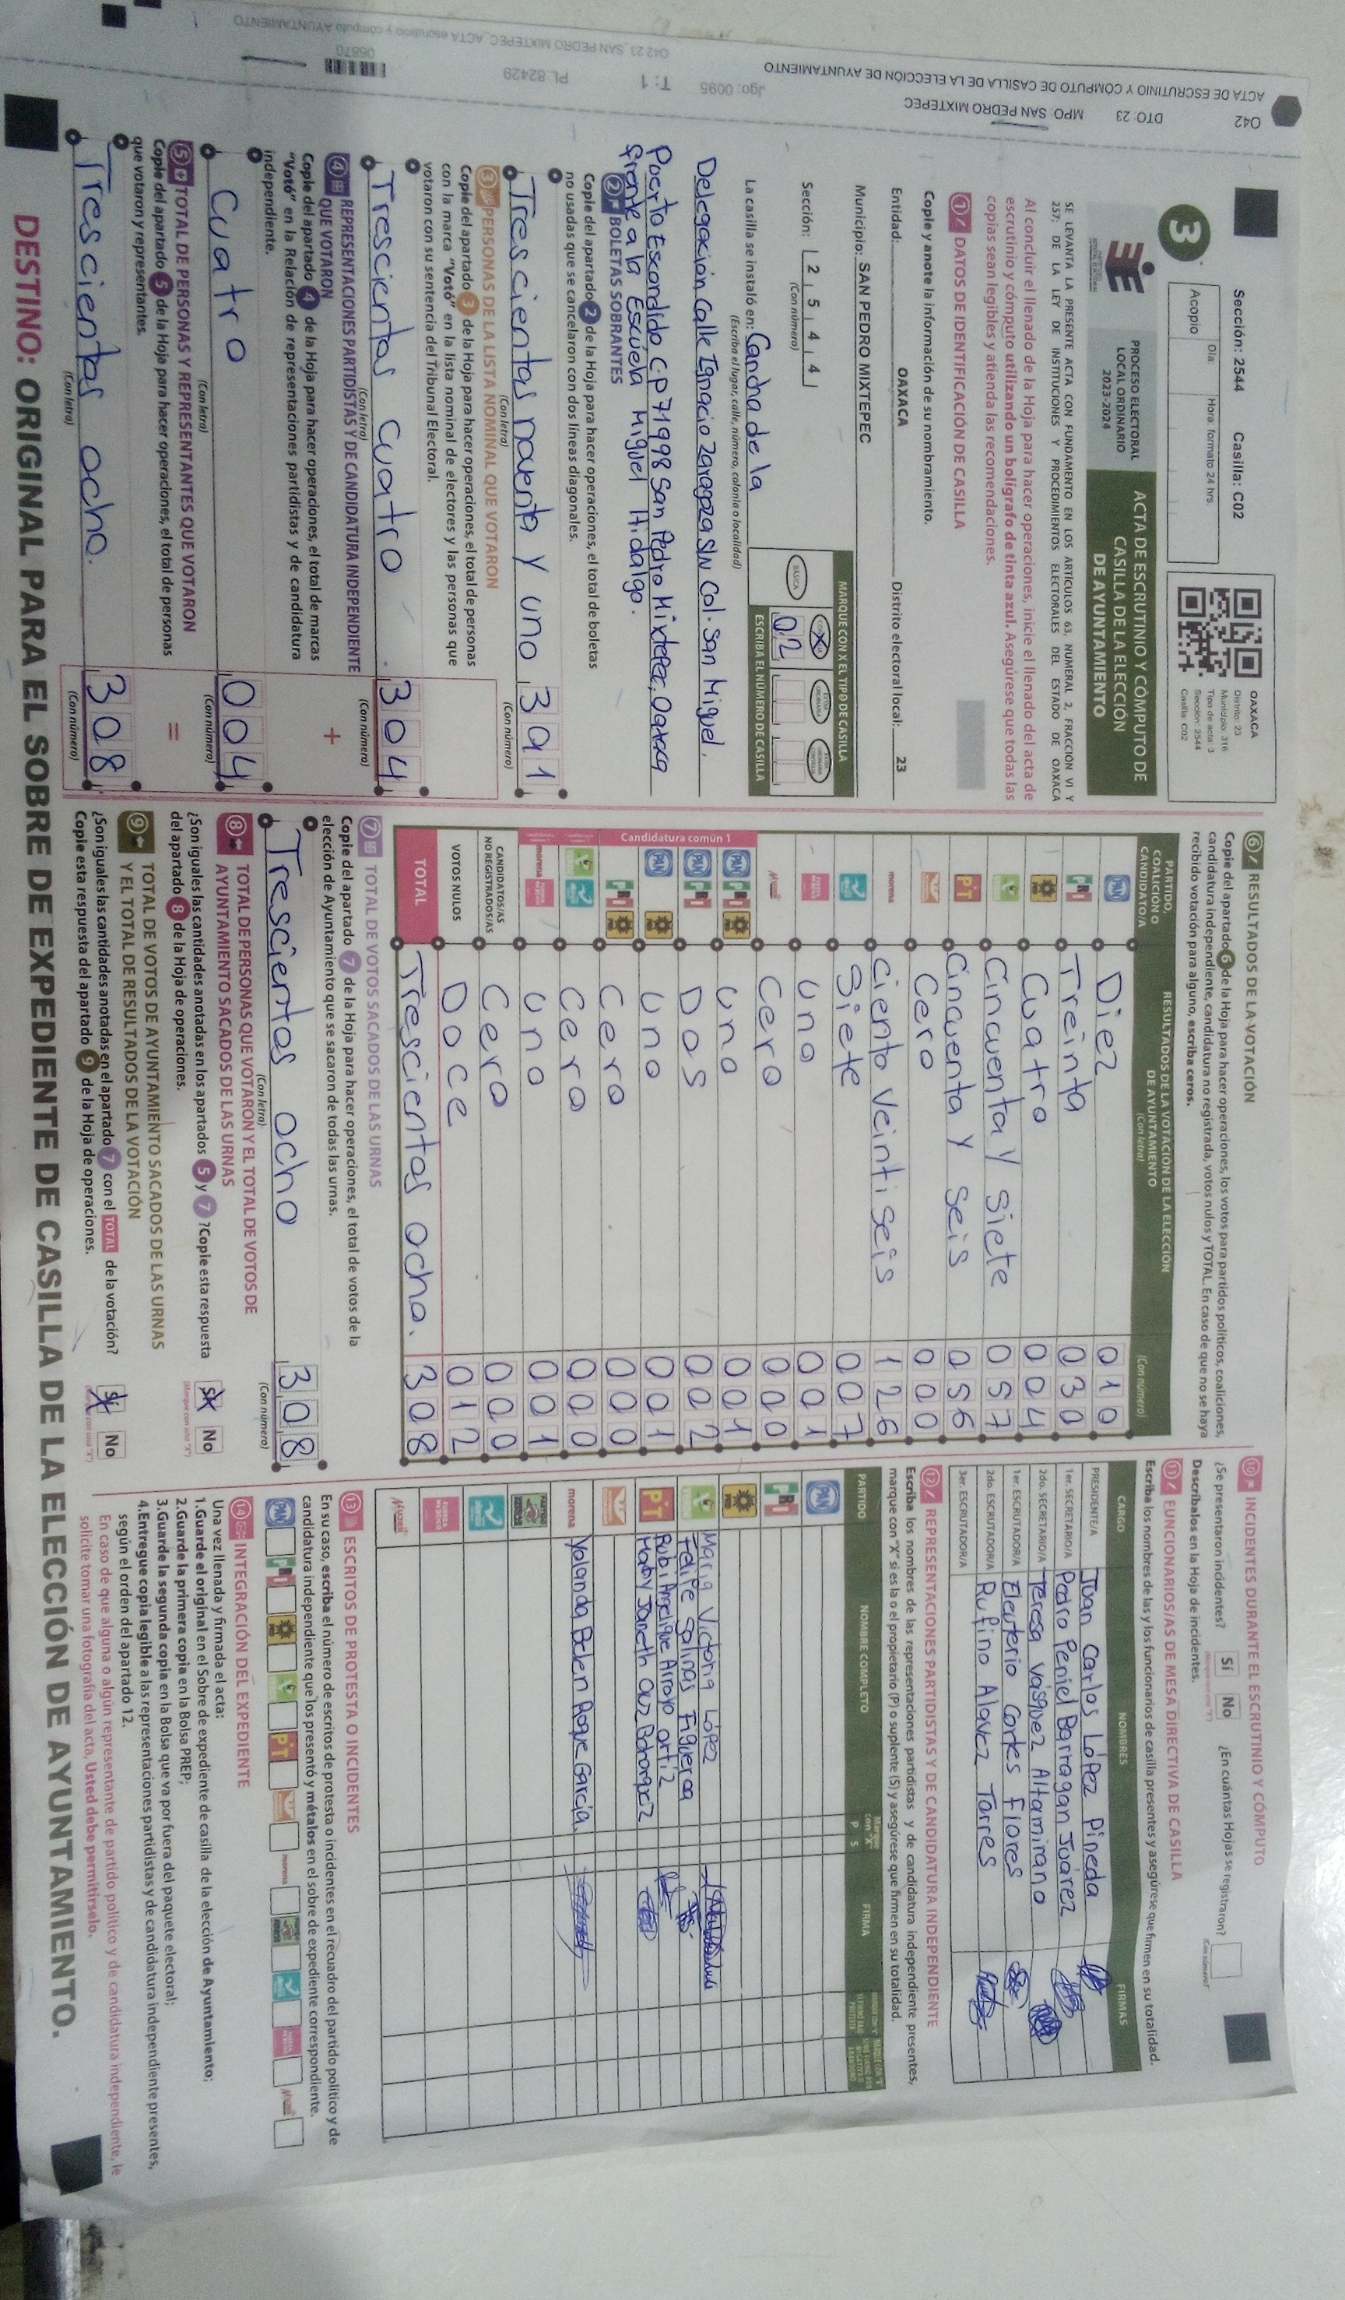 042 DTO: 23 MPO: SAN PEDRO MIXTEPEC
ACTA DE ESCRUTINIO Y CÓMPUTO DE CASILLA DE LA ELECCIÓN DE AYUNTAMIENTO
Jgo: 0095 T: 1 PL 82429
042 23 SAN PEDRO MIXTEPEC ACTA escrutinio y cómputo AYUNTAMIENTO
Sección: 2544 Casilla: C02
3
Acopio
Día:
Hora: formato 24 hrs.
OAXACA
Distrito: 23
Municipio: 316
Tipo de acta: 3
Sección: 2544
Casilla: C02
PROCESO ELECTORAL
LOCAL ORDINARIO
2023-2024
ACTA DE ESCRUTINIO Y CÓMPUTO DE
CASILLA DE LA ELECCIÓN
DE AYUNTAMIENTO
SE LEVANTA LA PRESENTE ACTA CON FUNDAMENTO EN LOS ARTÍCULOS 63, NUMERAL 2, FRACCIÓN VI Y
257; DE LA LEY DE INSTITUCIONES Y PROCEDIMIENTOS ELECTORALES DEL ESTADO DE OAXACA
Al concluir el llenado de la Hoja para hacer operaciones, inicie el llenado del acta de
escrutinio y cómputo utilizando un bolígrafo de tinta azul. Asegúrese que todas las
copias sean legibles y atienda las recomendaciones.
1 DATOS DE IDENTIFICACIÓN DE CASILLA
Copie y anote la información de su nombramiento.
Entidad: OAXACA Distrito electoral local: 23
Municipio: SAN PEDRO MIXTEPEC
Sección: 2 5 4 4
(Con número)
MARQUE CON X EL TIPO DE CASILLA
BÁSICA
02
ESCRIBA EL NÚMERO DE CASILLA
La casilla se instaló en: Cancha de la
(Escriba el lugar, calle, número, colonia o localidad)
Delegación Calle Ignacio Zaragoza S/N Col. San Miguel,
Puerto Escondido C.P 71998 San Pedro Mixtepec, Oaxaca
frente a la Escuela Miguel Hidalgo.
2 BOLETAS SOBRANTES
Copie del apartado 2 de la Hoja para hacer operaciones, el total de boletas
no usadas que se cancelaron con dos líneas diagonales.
Trescientas noventa y uno 391
(Con letra) (Con número)
3 PERSONAS DE LA LISTA NOMINAL QUE VOTARON
Copie del apartado 3 de la Hoja para hacer operaciones, el total de personas
con la marca "Votó" en la lista nominal de electores y las personas que
votaron con su sentencia del Tribunal Electoral.
Trescientas cuatro 304
(Con letra) (Con número)
4 REPRESENTACIONES PARTIDISTAS Y DE CANDIDATURA INDEPENDIENTE
QUE VOTARON
+
Copie del apartado 4 de la Hoja para hacer operaciones, el total de marcas
"Votó" en la Relación de representaciones partidistas y de candidatura
independiente.
cuatro 004
(Con letra) (Con número)
5 TOTAL DE PERSONAS Y REPRESENTANTES QUE VOTARON
=
Copie del apartado 5 de la Hoja para hacer operaciones, el total de personas
que votaron y representantes.
Trescientas ocho. 308
(Con letra) (Con número)
6 RESULTADOS DE LA VOTACIÓN
Copie del apartado 6 de la Hoja para hacer operaciones, los votos para partidos políticos, coaliciones,
candidatura independiente, candidatura no registrada, votos nulos y TOTAL. En caso de que no se haya
recibido votación para alguno, escriba ceros.
PARTIDO,
COALICIÓN O
CANDIDATO/A
RESULTADOS DE LA VOTACIÓN DE LA ELECCIÓN
DE AYUNTAMIENTO
(Con letra) (Con número)
PAN Diez 010
PRI Treinta 030
PRD Cuatro 004
Cincuenta y siete 057
PT Cincuenta y seis 056
Cero 000
morena Ciento veintiseis 126
Siete 007
Uno 001
Cero 000
Candidatura común 1
PAN PRI PRD Uno 001
PAN PRI Dos 002
PAN PRD Uno 001
PRI PRD Cero 000
Cero 000
morena Uno 001
CANDIDATOS/AS
NO REGISTRADOS/AS Cero 000
VOTOS NULOS Doce 012
TOTAL Trescientos ocho. 308
7 TOTAL DE VOTOS SACADOS DE LAS URNAS
Copie del apartado 7 de la Hoja para hacer operaciones, el total de votos de la
elección de Ayuntamiento que se sacaron de todas las urnas.
Trescientos ocho 308
(Con letra) (Con número)
8 TOTAL DE PERSONAS QUE VOTARON Y EL TOTAL DE VOTOS DE
AYUNTAMIENTO SACADOS DE LAS URNAS
¿Son iguales las cantidades anotadas en los apartados 5 y 7? Copie esta respuesta
del apartado 8 de la Hoja de operaciones.
Sí No
9 TOTAL DE VOTOS DE AYUNTAMIENTO SACADOS DE LAS URNAS
Y EL TOTAL DE RESULTADOS DE LA VOTACIÓN
¿Son iguales las cantidades anotadas en el apartado 7 con el TOTAL de la votación?
Copie esta respuesta del apartado 9 de la Hoja de operaciones.
Sí No
10 INCIDENTES DURANTE EL ESCRUTINIO Y CÓMPUTO
¿Se presentaron incidentes? Sí No ¿En cuántas Hojas se registraron?
(Con número)
Descríbalos en la Hoja de incidentes.
11 FUNCIONARIOS/AS DE MESA DIRECTIVA DE CASILLA
Escriba los nombres de las y los funcionarios de casilla presentes y asegúrese que firmen en su totalidad.
CARGO NOMBRES FIRMAS
PRESIDENTE/A Juan Carlos López Pineda
1er. SECRETARIO/A Pedro Peniel Barragan Juárez
2do. SECRETARIO/A Teresa Vásquez Altamirano
1er. ESCRUTADOR/A Eleuterio Cortes Flores
2do. ESCRUTADOR/A Rufino Alavez Tares
3er. ESCRUTADOR/A
12 REPRESENTACIONES PARTIDISTAS Y DE CANDIDATURA INDEPENDIENTE
Escriba los nombres de las representaciones partidistas y de candidatura independiente presentes,
marque con "X" si es la o el propietario (P) o suplente (S) y asegúrese que firmen en su totalidad.
PARTIDO NOMBRE COMPLETO P S FIRMA
PAN
PRI
PRD
Maria Victoria López
Felipe Salinas Figueroa
PT Rubi Angelique Arroyo ortiz
morena Yolanda Belen Roque Garcia.
13 ESCRITOS DE PROTESTA O INCIDENTES
En su caso, escriba el número de escritos de protesta o incidentes en el recuadro del partido político y de
candidatura independiente que los presentó y métalos en el sobre de expediente correspondiente.
PAN PRI PRD PT morena
14 INTEGRACIÓN DEL EXPEDIENTE
Una vez llenada y firmada el acta:
1.Guarde el original en el Sobre de expediente de casilla de la elección de Ayuntamiento;
2.Guarde la primera copia en la Bolsa PREP;
3.Guarde la segunda copia en la Bolsa que va por fuera del paquete electoral;
4.Entregue copia legible a las representaciones partidistas y de candidatura independiente presentes,
según el orden del apartado 12.
En caso de que alguna o algún representante de partido político y de candidatura independiente, le
solicite tomar una fotografía del acta, Usted debe permitírselo.
DESTINO: ORIGINAL PARA EL SOBRE DE EXPEDIENTE DE CASILLA DE LA ELECCIÓN DE AYUNTAMIENTO.